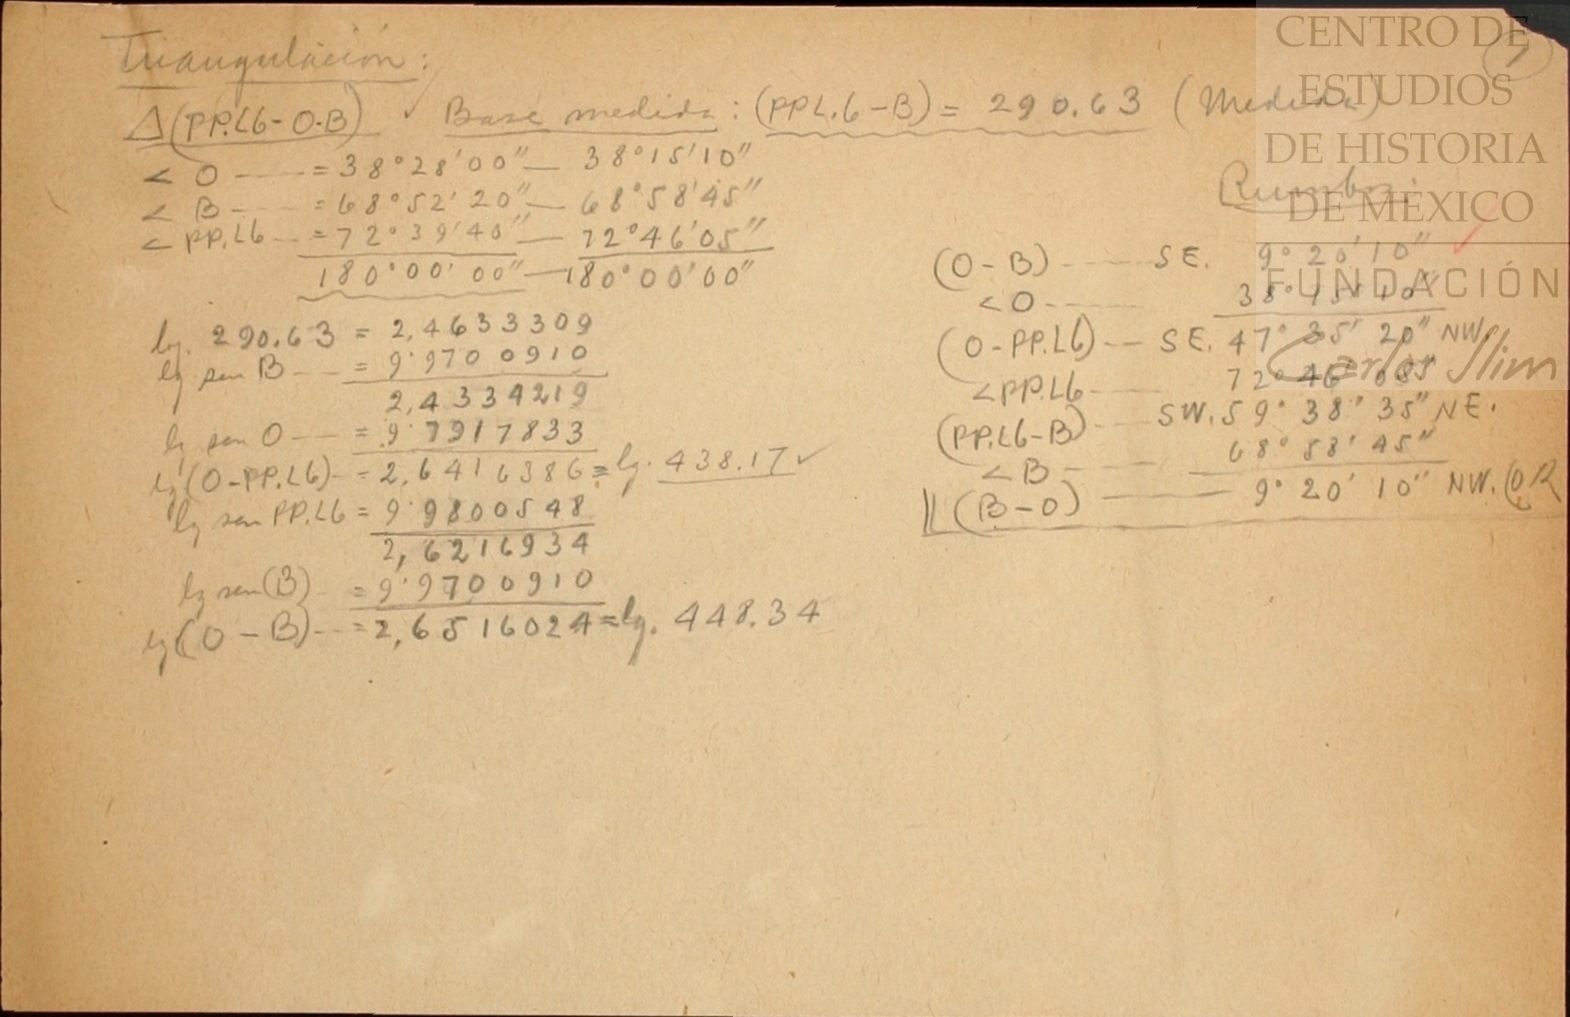 Triangulación:
Δ(PP.L6-O-B) ✓ Base medida: (PPL.6-B) = 290.63 (Medida)
< O ---- = 38°28'00" — 38°15'10"
< B ---- = 68°52'20" — 68°58'45"
< PP.L6 -- = 72°39'40" — 72°46'05"
180°00'00" — 180°00'00"
lg. 290.63 = 2,4633309
lg sen B --- = 9.9700910
2,4334219
lg sen O --- = 9.7917833
lg (O-PP.L6) -- = 2,6416386 = lg. 438.17 ✓
lg sen PP.L6 = 9.9800548
2,6216934
lg sen (B) - = 9.9700910
lg (O-B) --- = 2,6516024 = lg. 448.34
1
Rumbos:
(O-B) ---- SE. 9°20'10" ✓
<O ---- 38°15'10"
(O-PP.L6) --- SE. 47°35'20" NW.
<PP.L6 ---- 72°46'05"
(PP.L6-B) --- SW. 59°38'35" NE.
<B ---- 68°58'45"
(B-O) ---- 9°20'10" NW.
CENTRO DE
ESTUDIOS
DE HISTORIA
DE MÉXICO
FUNDACIÓN
Carlos Slim